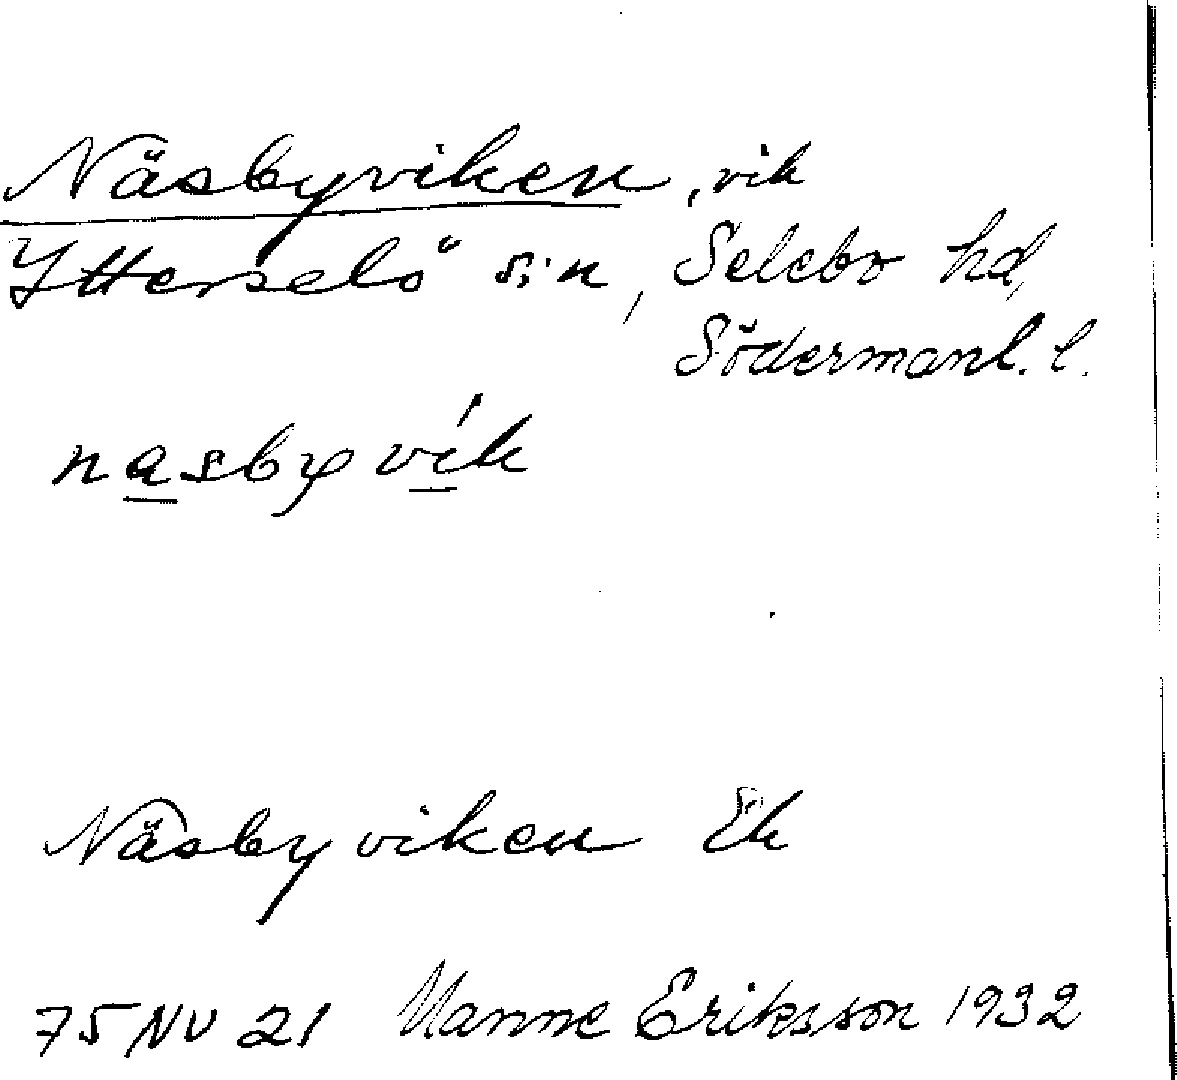 Näsbyviken, vik
Ytterselö s:n, Selebo hd,
Södermanl. l.
nasbyvík
Näsbyviken Ek
75 NV 21 Manne Eriksson 1932